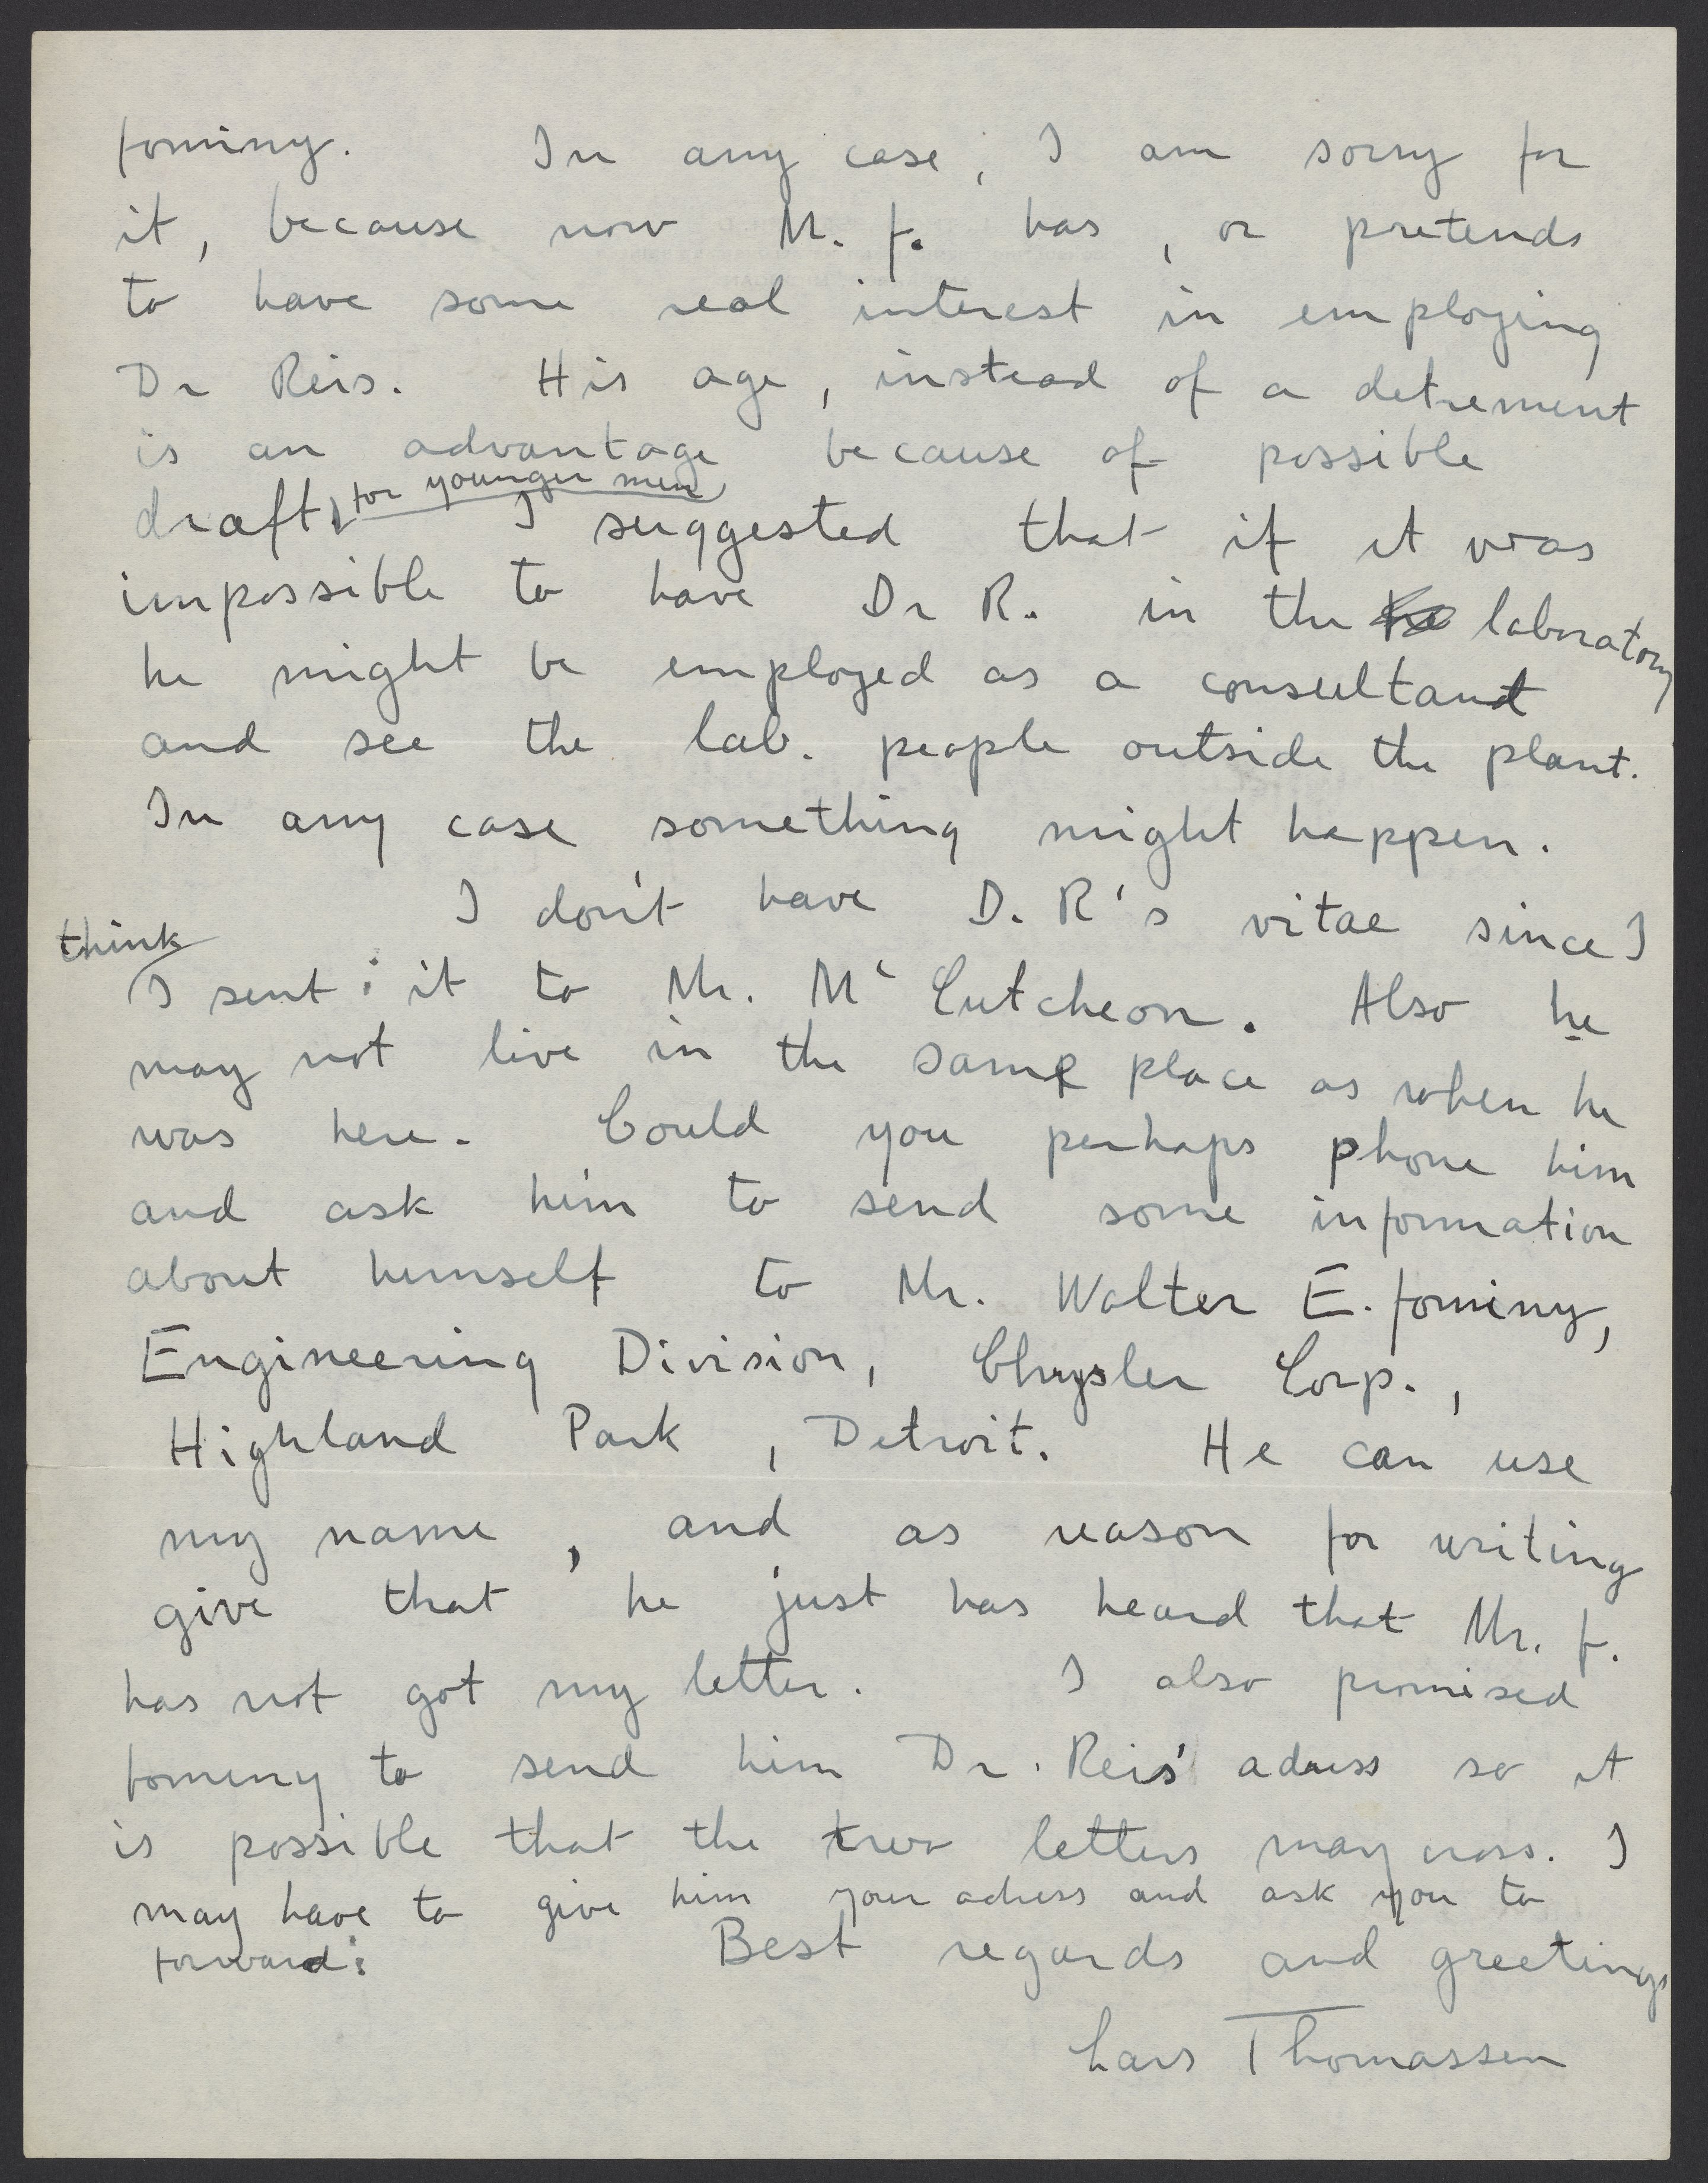 fominy. In any case, I am sorry for
it, because now M. f. has, or pretends
to have some real interest in employing
Dr Reis. His age, instead of a detrement
is an advantage because of possible
for younger men
draft, I suggested that if it was
impossible to have Dr R. in the laboratory
he might be employed as a consultant
and see the lab. people outside the plant.
In any case something might happen.
I don't have D. R's vitae since I
think
I sent it to Mr. Mc Cutcheon. Also he
may not live in the same place as when he
was here. Could you perhaps phone him
and ask him to send some information
about himself to Mr. Walter E. fominy,
Engineering Division, Chrysler Corp.,
Highland Park, Detroit. He can use
my name, and as reason for writing
give that he just has heard that Mr. f.
has not got my letter. I also promised
fominy to send him Dr. Reis' adress so it
is possible that the two letters may cross. I
may have to give him your adress and ask you to
forward:
Best regards and greetings
Lars Thomassen